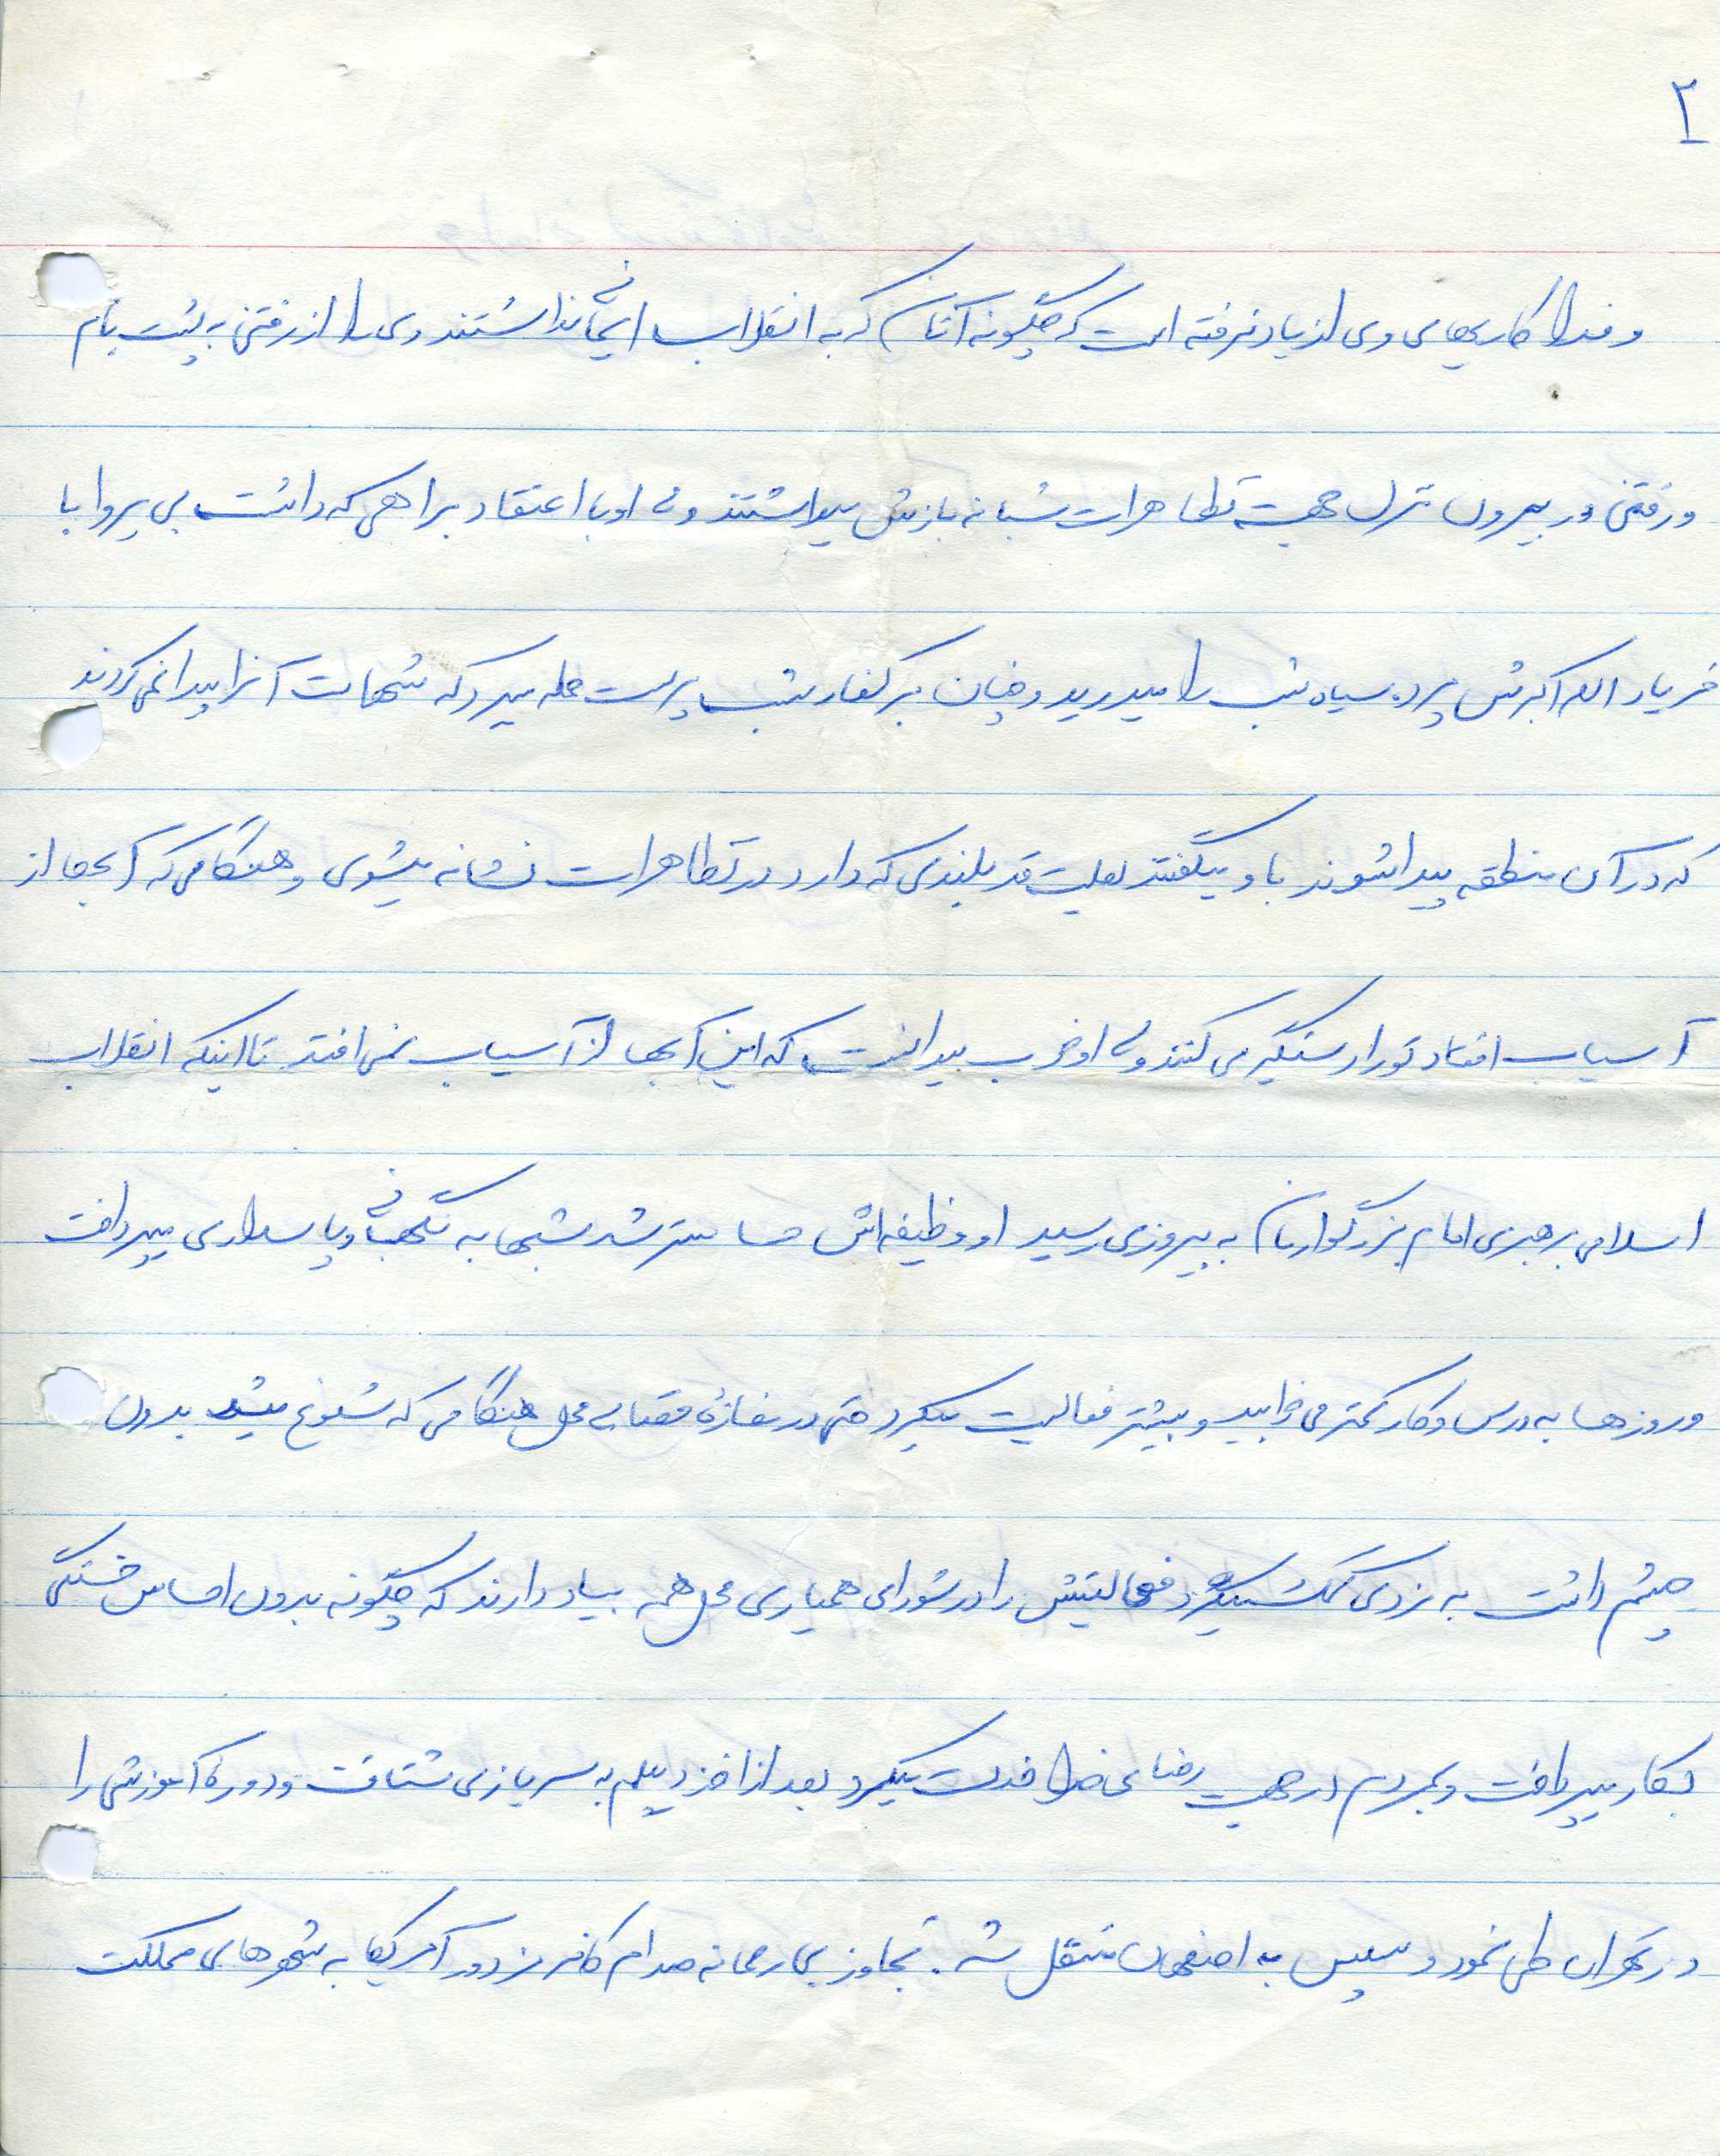 ۲
و فداکاریهای وی از یاد نرفته است که چگونه آنان که به انقلاب ایمانی نداشتند وی را از رفتن به پشت بام
و رفتن در بیرون منزل جهت تظاهرات شبانه بازش میداشتند ولی او با اعتقاد براهی که داشت بی پروا با
فریاد الله اکبرش پرده سیاه شب را میدرید و چنان بر کفار شب پرست حمله میبرد که شهامت آنرا پیدا نمی کردند
که در آن منطقه پیدا شوند باو میگفتند بعلت قد بلندی که دارد در تظاهرات نشانه میشوی و هنگامی که آبها از
آسیاب افتاد تو را دستگیر می کنند ولی او خوب میدانست که این آبها از آسیاب نمی افتد تا اینکه انقلاب
اسلامی برهبری امام بزرگوارمان به پیروزی رسید او وظیفه اش حساستر شد شبها به نگهبانی و پاسداری میپرداخت
و روزها به درس و کار کمتر می خوابید و بیشتر فعالیت میکرد حتی در مغازه قصابی محل هنگامی که شلوغ میشد بدون
چشم داشت به مزدی کمک میکرد و فعالیتش را در شورای همیاری محل همه بیاد دارند که چگونه بدون احساس خستگی
بکار میپرداخت و بمردم در جهت رضای خدا خدمت میکرد بعد از اخذ دیپلم به سربازی شتافت و دوره آموزشی را
در تهران طی نمود و سپس به اصفهان منتقل شد. تجاوز بی رحمانه صدام کافر مزدور آمریکا به شهرهای مملکت